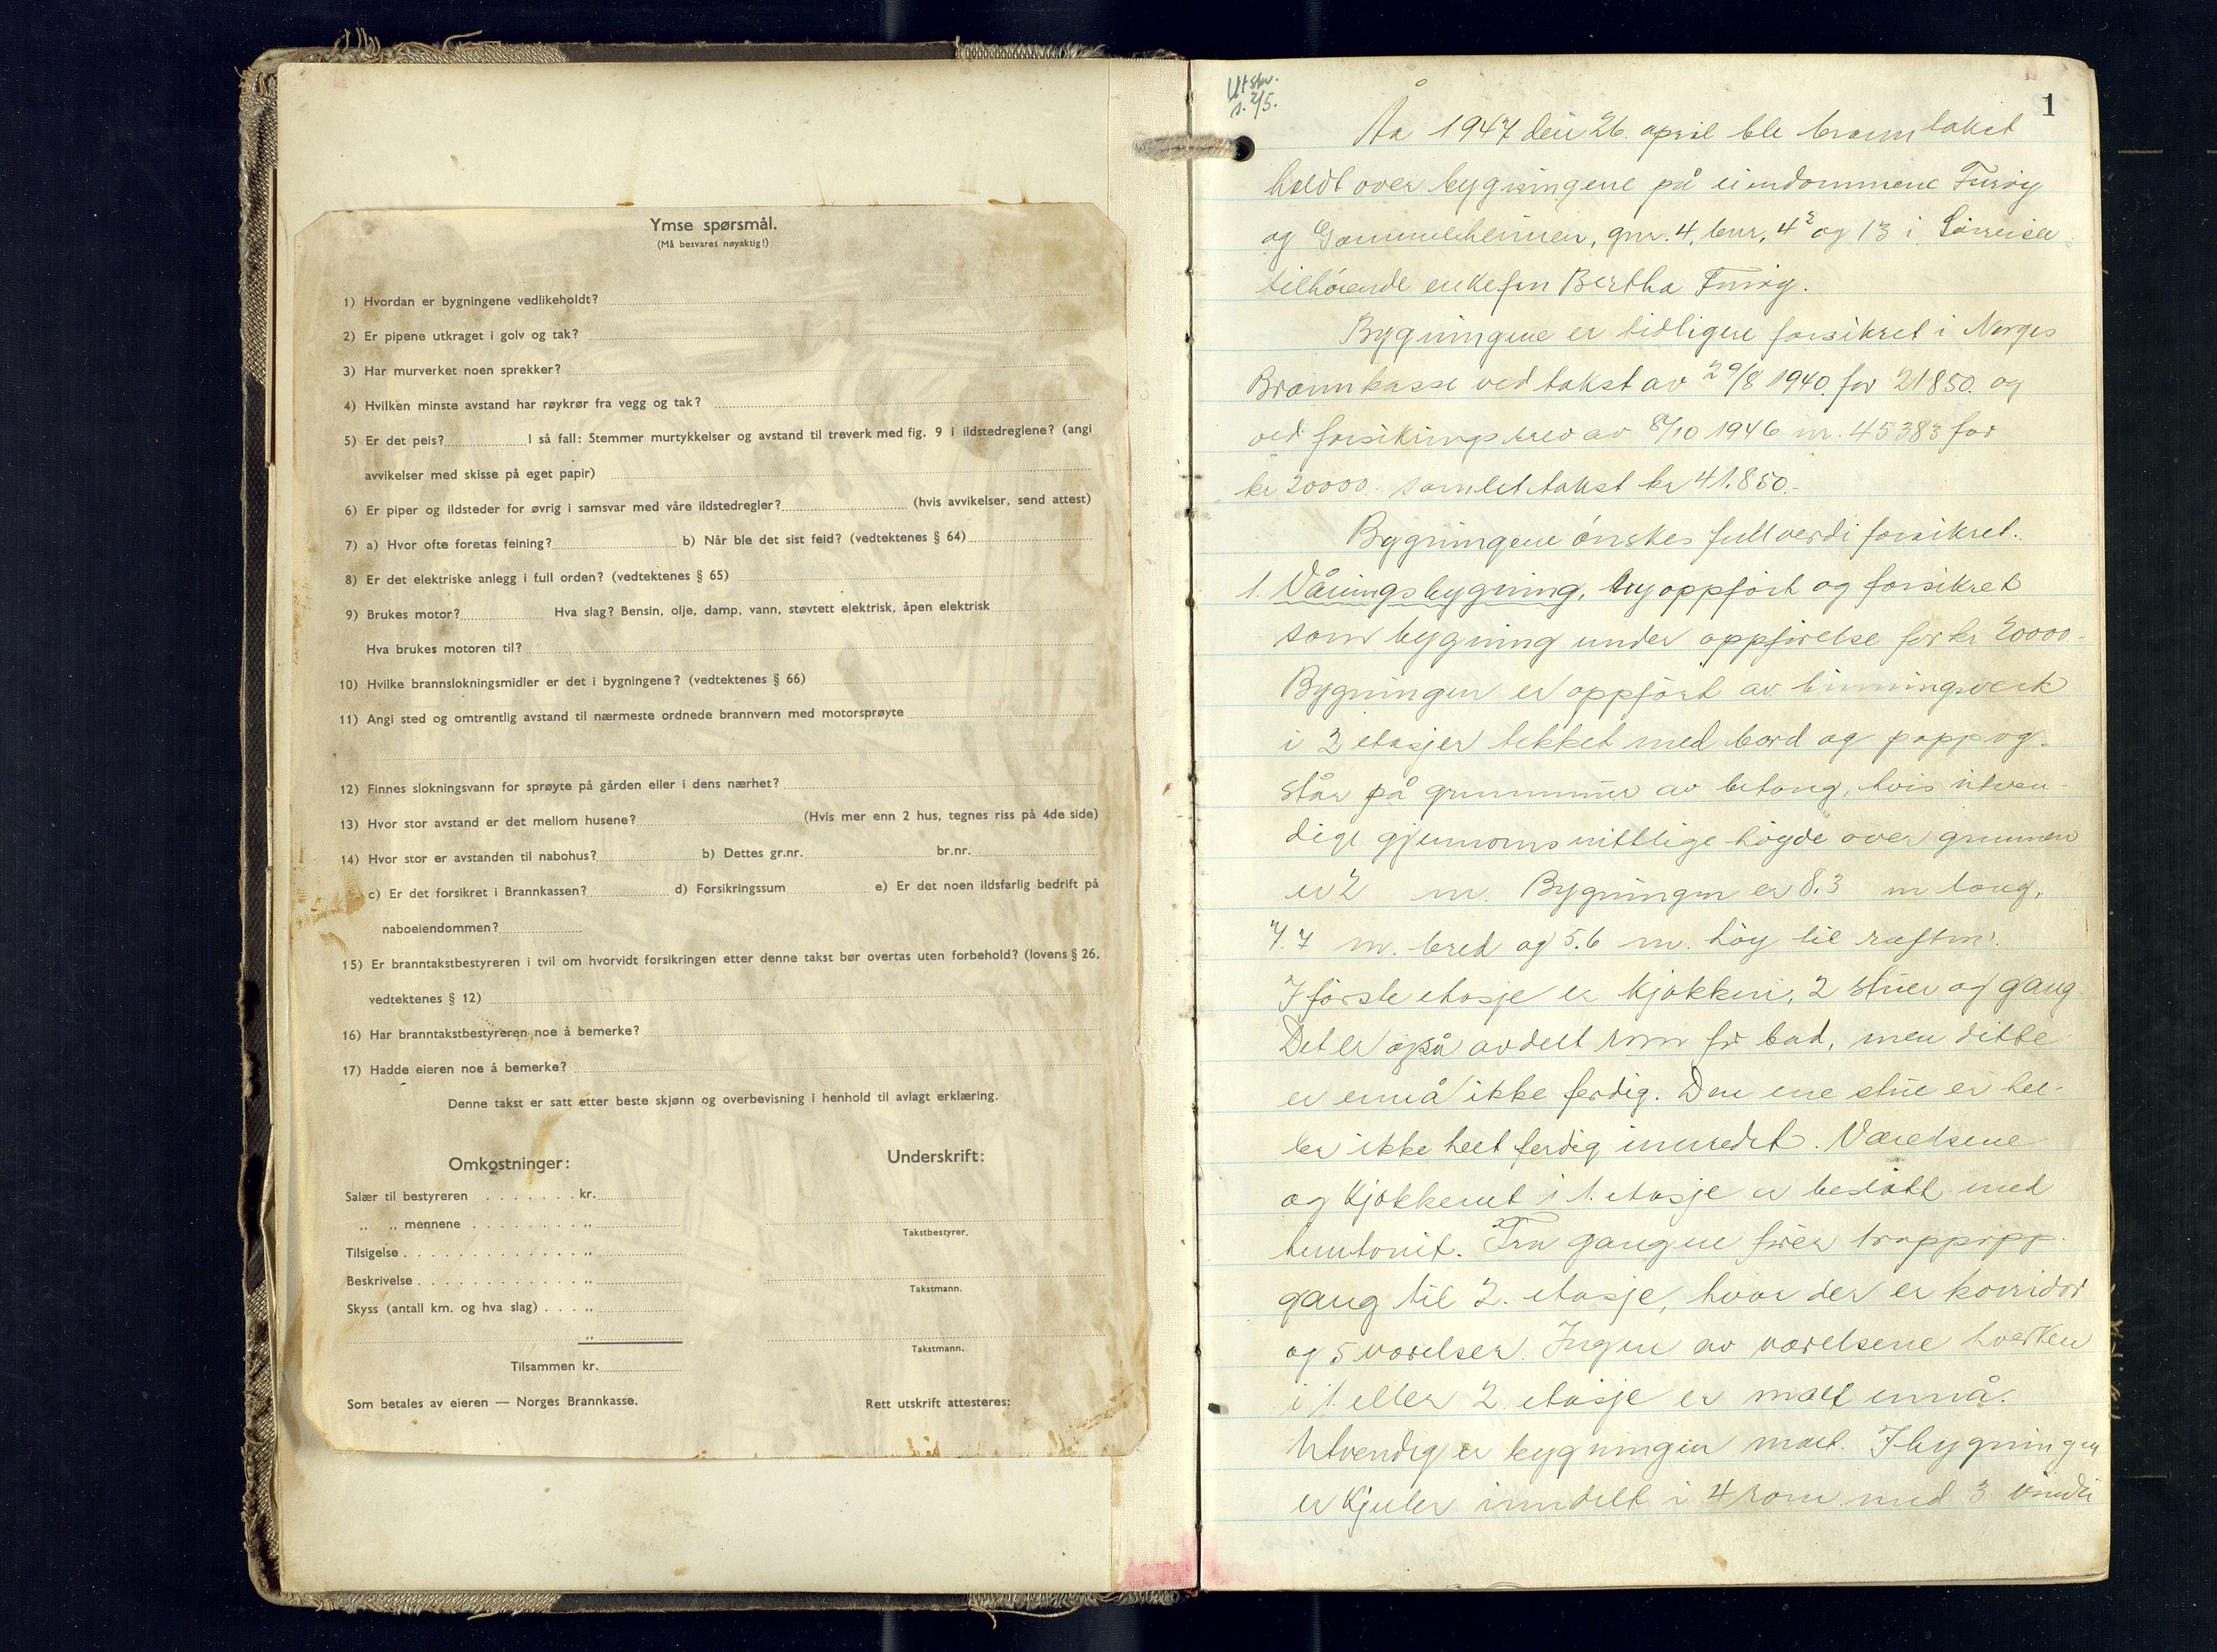 Ymse spørsmål.
(Må besvares nøyaktig!)
1) Hvordan er bygningene vedlikeholdt?
2) Er pipene utkraget i golv og tak?
3) Har murverket noen sprekker?
4) Hvilken minste avstand har røykrør fra vegg og tak?
5) Er det peis? I så fall: Stemmer murtykkelser og avstand til treverk med fig. 9 i ildstedreglene? (angi
avvikelser med skisse på eget papir)
6) Er piper og ildsteder for øvrig i samsvar med våre ildstedregler? (hvis avvikelser, send attest)
7) a) Hvor ofte foretas feining? b) Når ble det sist feid? (vedtektenes § 64)
8) Er det elektriske anlegg i full orden? (vedtektenes § 65)
9) Brukes motor? Hva slag? Bensin, olje, damp, vann, støvtett elektrisk, åpen elektrisk
Hva brukes motoren til?
10) Hvilke brannslokningsmidler er det i bygningene? (vedtektenes § 66)
11) Angi sted og omtrentlig avstand til nærmeste ordnede brannvern med motorsprøyte
12) Finnes slokningsvann for sprøyte på gården eller i dens nærhet?
13) Hvor stor avstand er det mellom husene? (Hvis mer enn 2 hus, tegnes riss på 4de side)
14) Hvor stor er avstanden til nabohus? b) Dettes gr.nr. br.nr.
c) Er det forsikret i Brannkassen? d) Forsikringssum e) Er det noen ildsfarlig bedrift på
naboeiendommen?
15) Er branntakstbestyreren i tvil om hvorvidt forsikringen etter denne takst bør overtas uten forbehold? (lovens § 26,
vedtektenes § 12)
16) Har branntakstbestyreren noe å bemerke?
17) Hadde eieren noe å bemerke?
Denne takst er satt etter beste skjønn og overbevisning i henhold til avlagt erklæring.
Omkostninger:
Salær til bestyreren . . . . . . . kr.
„ „ mennene . . . . . . . . . „
Tilsigelse . . . . . . . . . . . . . . „
Beskrivelse . . . . . . . . . . . . . „
Skyss (antall km. og hva slag) . . . „
„
Tilsammen kr.
Som betales av eieren — Norges Brannkasse.
Underskrift:
Takstbestyrer.
Takstmann.
Takstmann.
Rett utskrift attesteres:
Utskr.
s. 2/5.
1
År 1947 den 26. april ble branntakst
holdt over bygningene på eiendommene Furøy
og Gammelheimen, gnr. 4, bnr. 4² og 13 i Sørreisa
tilhørende enkefru Bertha Furøy.
Bygningene er tidligere forsikret i Norges
Brannkasse ved takst av 29/8 1940 for 21850. og
ved forsikringsbrev av 8/10 1946 nr. 45383 for
kr 20000.- samlet takst kr 41.850.-
Bygningene ønskes fullverdi forsikret.
1. Våningsbygning, ny oppført og forsikret
som bygning under oppførelse for kr 20000.-
Bygningen er oppført av binningsverk
i 2 etasjer tekket med bord og papp og
står på grunnmur av betong, hvis utven-
dige gjennomsnittlige høyde over grunnen
er 2 m. Bygningen er 8.3 m lang,
7.7 m. bred og 5.6 m. høy til raftene.
I første etasje er kjøkken, 2 stuer og gang
Det er også avdelt rom for bad, men dette
er ennå ikke ferdig. Den ene stue er hel-
ler ikke helt ferdig innredet. Værelsene
og kjøkkenet i 1. etasje er beslått med
huntonit. Fra gangen fører trappopp-
gang til 2. etasje, hvor der er korridor
og 5 værelser. Ingen av værelsene hverken
i 1. eller 2 etasje er malt ennå.
Utvendig er bygningen malt. I bygningen
er kjeller inndelt i 4 rom med 3 vindu